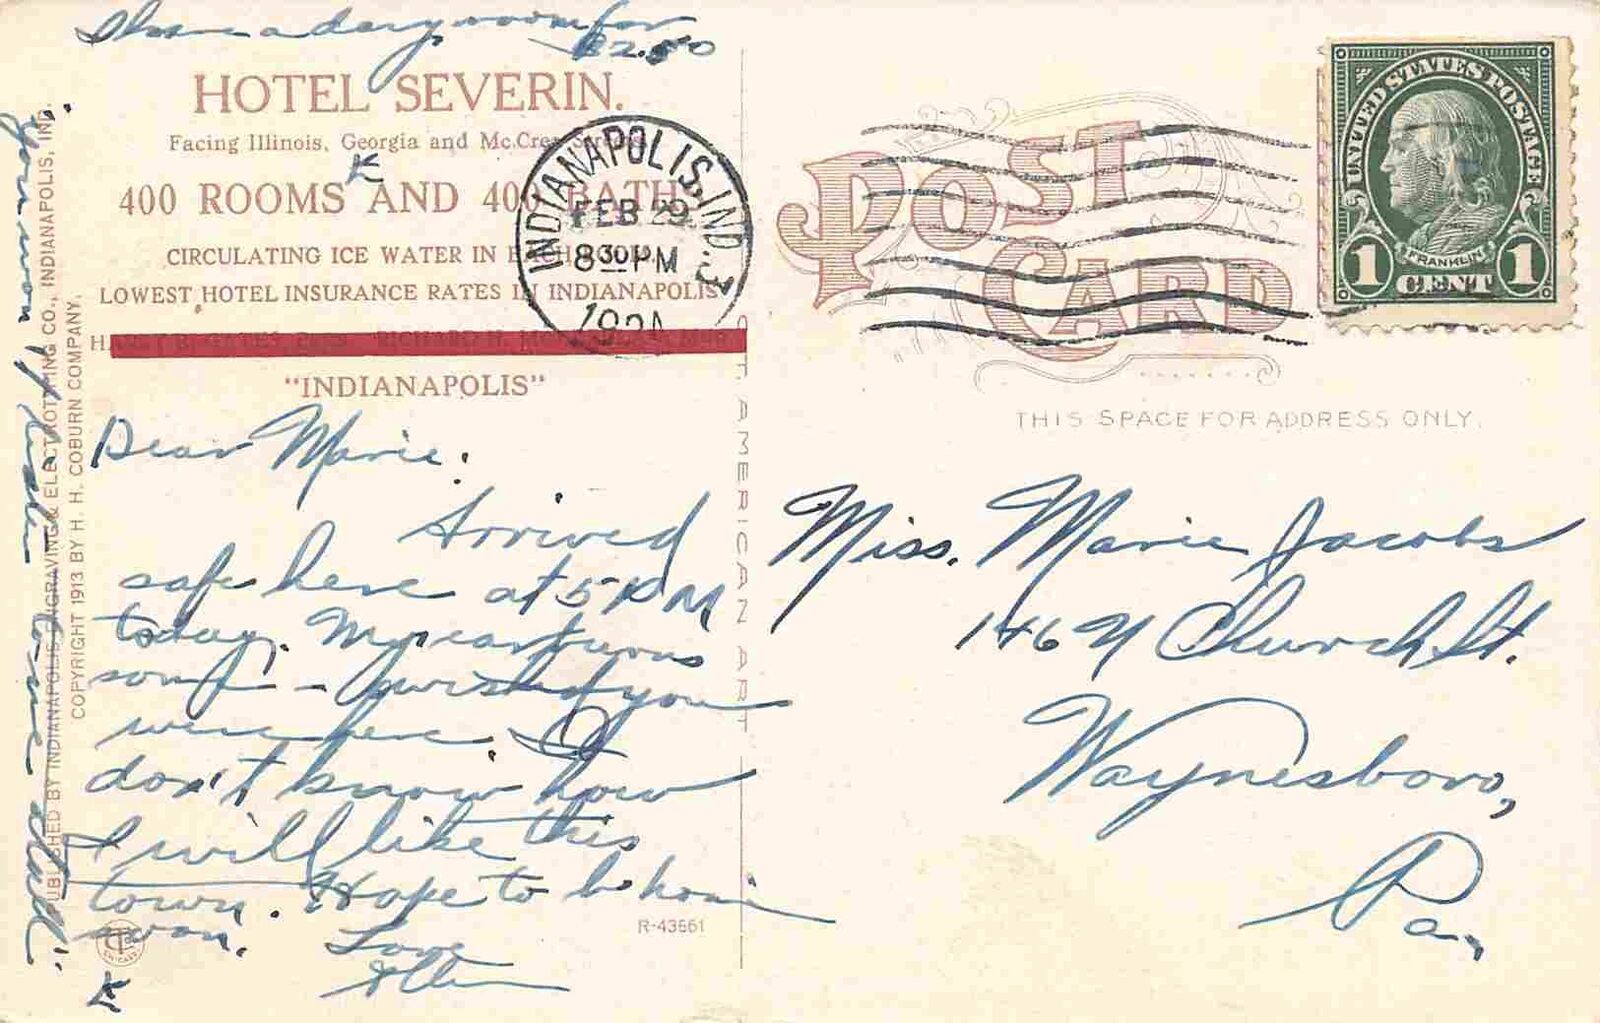 I have a dandy room for
$2.50
HOTEL SEVERIN.
Facing Illinois, Georgia and Mc.Crea Streets
K
400 ROOMS AND 400 BATHS
CIRCULATING ICE WATER IN EACH ROOM
LOWEST HOTEL INSURANCE RATES IN INDIANAPOLIS
"INDIANAPOLIS"
INDIANAPOLIS, IND. 3
FEB 29
8 30 PM
192
Dear Marie.
Arrived
safe here at 5 P M
today. My ear turns
some - I wished you
were here. I
don't know how
I will like this
town. Hope to be home
soon.
Love
K
PUBLISHED BY INDIANAPOLIS ENGRAVING & ELECTROTYPING CO., INDIANAPOLIS, IND.
COPYRIGHT 1913 BY H. H. COBURN COMPANY.
R-43661
C.T. AMERICAN ART
CHICAGO
POST
CARD
THIS SPACE FOR ADDRESS ONLY.
UNITED STATES POSTAGE
FRANKLIN
1 CENT 1
Miss. Marie Jacobs
146 N Church St.
Waynesboro,
Pa.